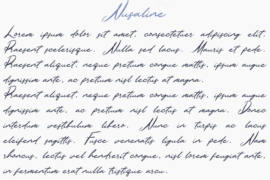 Nusaline
Lorem ipsum dolor sit amet, consectetuer adipiscing elit.
Praesent scelerisque. Nulla sed lacus. Mauris et pede.
Praesent aliquet, neque pretium congue mattis, ipsum augue
dignissim ante, ac pretium nisl lectus at magna.
Praesent aliquet, neque pretium congue mattis, ipsum augue
dignissim ante, ac pretium nisl lectus at magna. Donec
interdum vestibulum libero. Nunc in turpis ac lacus
eleifend sagittis. Fusce venenatis ligula in pede. Nam
rhoncus, lectus vel hendrerit congue, nisl lorem feugiat ante,
in fermentum erat nulla tristique arcu.